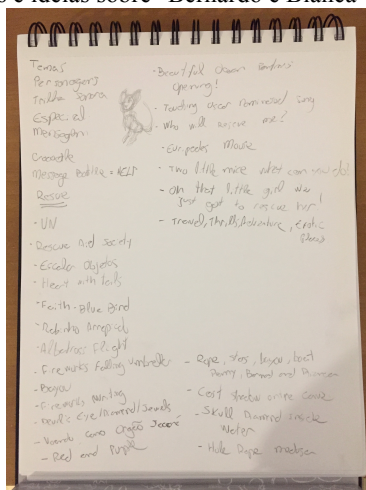 e ideias sobre "Bernardo e Bianca
Temas
Personagens
Trilha Sonora
Espacial
Mensagem
Crocodile
Message Bottle = HELP
Rescue
- UN
- Rescue Aid Society
- Escala Objetos
- Heart with tails
- Faith - Blue Bird
- Albatross Flight
- Fireworks Falling Umbrella
- Bayou
- Fireworks
- Devil's Eye/Diamond/Jewels
- Virando Como
- Red and Purple
- Beautiful
opening!
- Touching Oscar nominated song
- Who will rescue me?
- European Mouse
- Two little mice what can you do!
- Oh that little girl we
just got to rescue her!
- Travel, Thrills, Adventure, Exotic
- Rope, stars, bayou, boat
Penny, Bernard and
- Cast shadow onto cave
- Skull Diamond inside
Water